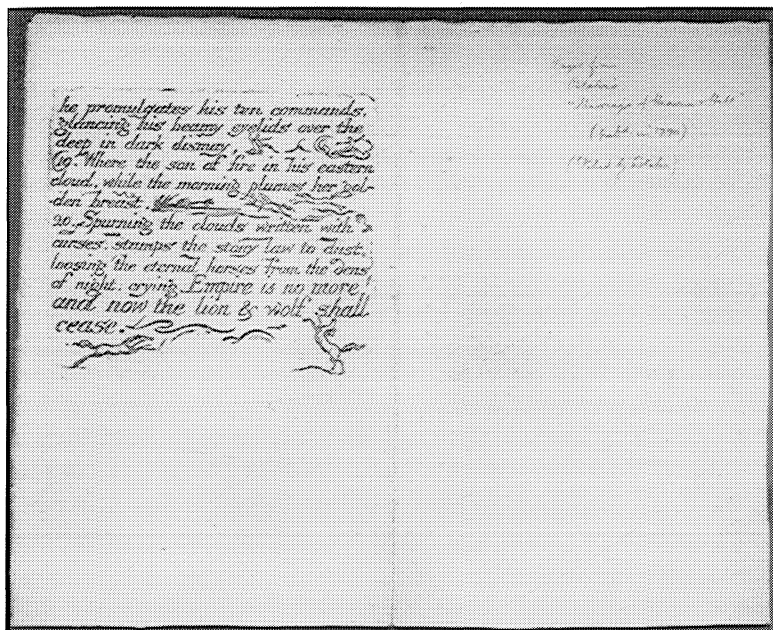 he promulgates his ten commands,
glancing his beamy eyelids over the
deep in dark dismay,
19. Where the son of fire in his eastern
cloud, while the morning plumes her gol-
-den breast.
20. Spurning the clouds written with
curses, stamps the stony law to dust,
loosing the eternal horses from the dens
of night, crying Empire is no more!
and now the lion & wolf shall
cease.
Page from
"Marriage of Heaven & Hell"